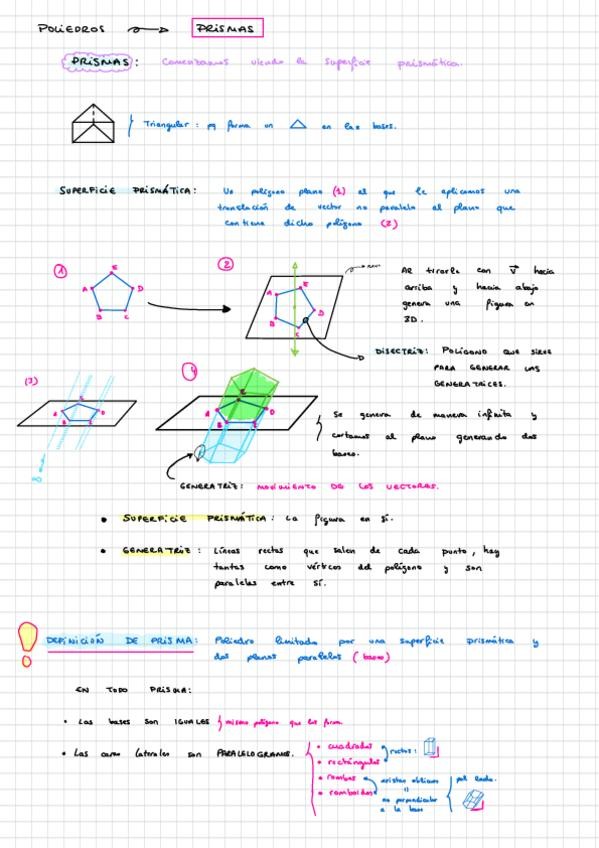 POLIEDROS → PRISMAS
PRISMAS: Comenzamos viendo la superficie prismática.
Triangular: pq forma un △ en las bases.
SUPERFICIE PRISMÁTICA: Un polígono plano (1) al que le aplicamos una
translación de vector no paralelo al plano que
contiene dicho polígono (2)
1
A E D B C
2
A E D B C
AR tirarle con v⃗ hacia
arriba y hacia abajo
genera una figura en
3D.
DISECTRIZ: POLÍGONO QUE SIRVE
PARA GENERAR LAS
GENERATRICES.
(3)
A E D B C
∞
4
A E D B C
Se genera de manera infinita y
cortamos al plano generando dos
bases.
GENERATRIZ: MOVIMIENTO DE LOS VECTORES.
• SUPERFICIE PRISMÁTICA: La figura en sí.
• GENERATRIZ: Líneas rectas que salen de cada punto, hay
tantas como vértices del polígono y son
paralelas entre sí.
! DEFINICIÓN DE PRISMA: Poliedro limitado por una superficie prismática y
dos planos paralelos (bases)
EN TODO PRISMA:
• Las bases son IGUALES } mismo polígono que las forma.
• Las caras laterales son PARALELOGRAMOS.
• cuadrados
• rectángulos
rectos:
• rombos
• romboides
aristas oblicuas
no perpendicular
a la base